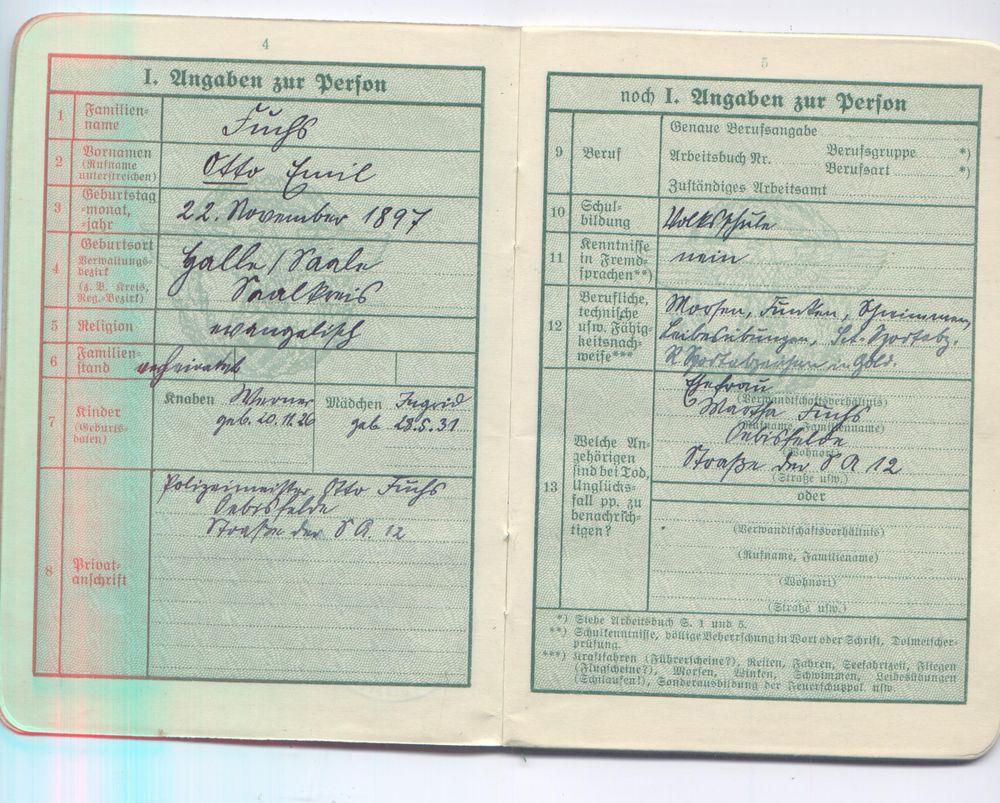 4
I. Angaben zur Person
1 Familien-
name
Fuchs
2 Vornamen
(Rufname
unterstreichen)
Otto Emil
3 Geburtstag
-monat,
-jahr
22. November 1897
4 Geburtsort
Verwaltungs-
bezirk
(z. B. Kreis,
Reg.-Bezirk)
Halle / Saale
Saalkreis
5 Religion
evangelisch
6 Familien-
stand
verheiratet
7 Kinder
(Geburts-
daten)
Knaben Werner
geb. 20.11.26
Mädchen Ingrid
geb. 28.5.31
8 Privat-
anschrift
Polizeimeister Otto Fuchs
Oebisfelde
Straße der S A. 12
5
noch I. Angaben zur Person
9 Beruf
Genaue Berufsangabe
Arbeitsbuch Nr. Berufsgruppe *)
Berufsart *)
Zuständiges Arbeitsamt
10 Schul-
bildung
Volksschule
11 Kenntnisse
in Fremd-
sprachen**)
nein
12 Berufliche,
technische
usw. Fähig-
keitsnach-
weise***
Morsen, Funken, Schwimmen,
Leibesübungen, Sportabz.
R. Sportabzeichen in Gold.
13 Welche An-
gehörigen
sind bei Tod,
Unglücks-
fall pp. zu
benachrich-
tigen?
Ehefrau
(Verwandtschaftsverhältnis)
Martha Fuchs
(Rufname, Familienname)
Oebisfelde
(Wohnort)
Straße der S A 12
(Straße usw.)
oder
(Verwandtschaftsverhältnis)
(Rufname, Familienname)
(Wohnort)
(Straße usw.)
*) Siehe Arbeitsbuch S. 1 und 5.
**) Schulkenntnisse, völlige Beherrschung in Wort oder Schrift, Dolmetscher-
prüfung.
***) Kraftfahren (Führerscheine?), Reiten, Fahren, Seefahrtzeit, Fliegen
(Flugscheine?), Morsen, Winken, Schwimmen, Leibesübungen
(Schilaufen!), Sonderausbildung der Feuerschutzpol. usw.